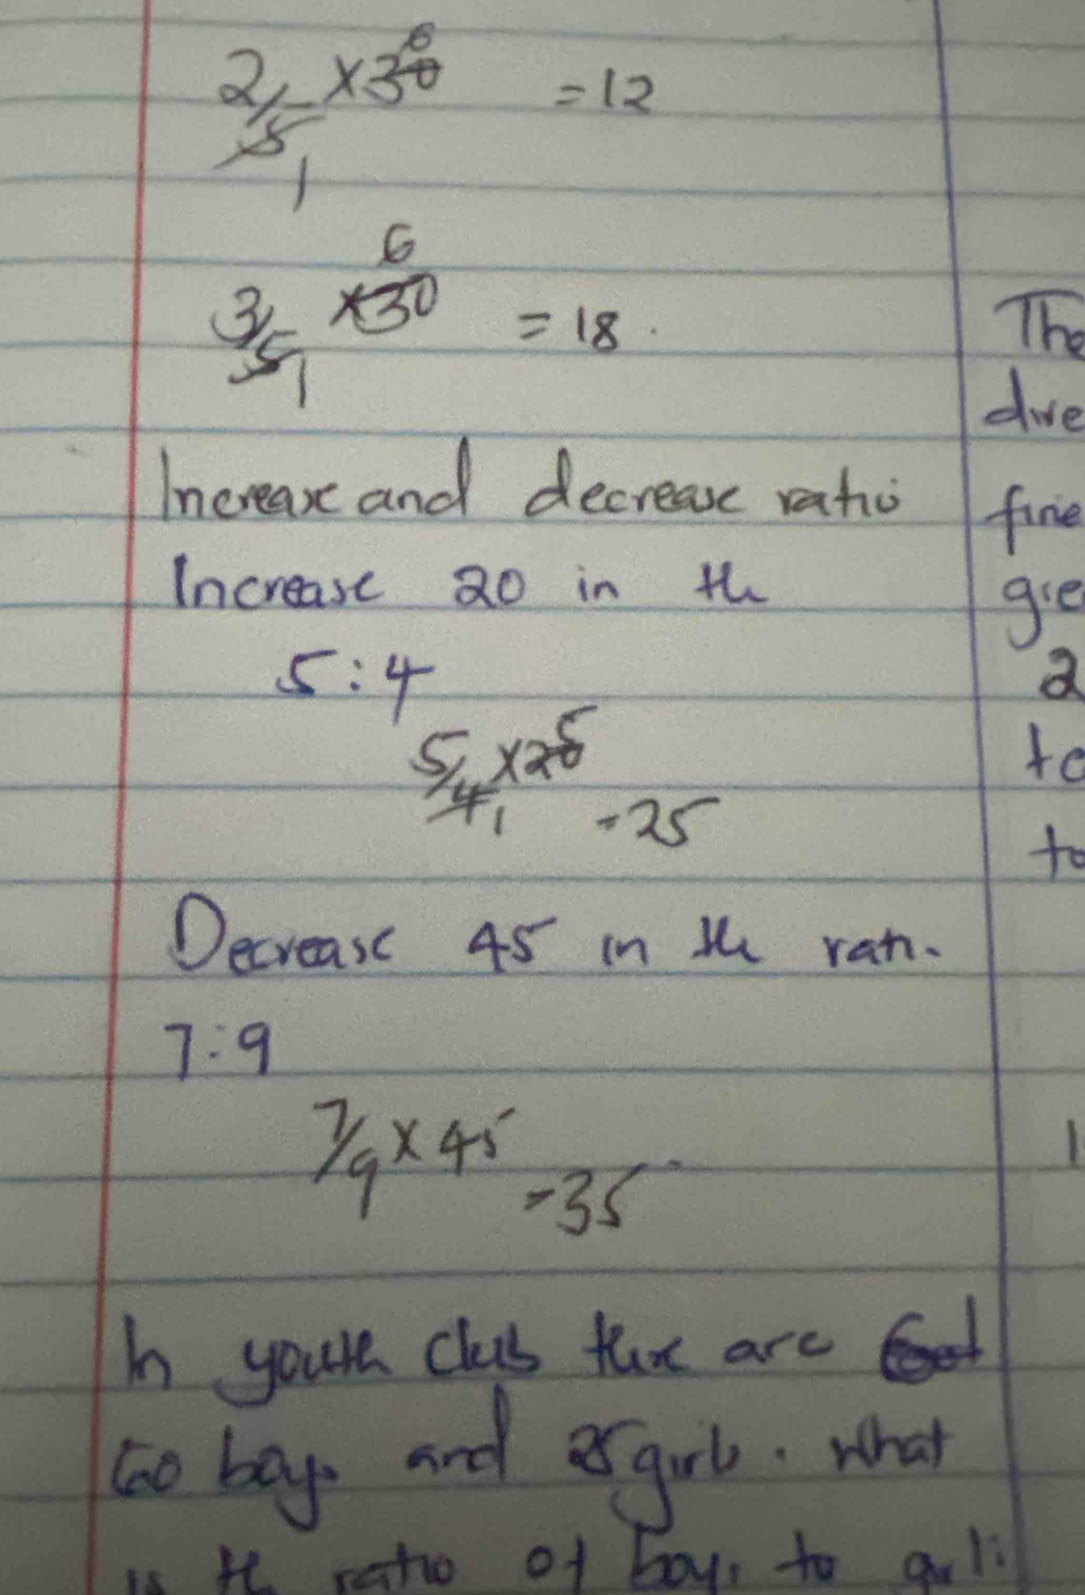 2/5 x 30 6 = 12
1
6
3/5 x 30 = 18.
1
Increase and decrease ratio
Increase 20 in the
5:4
5/4 x 20 5
1 = 25
Decrease 45 in the rati.
7:9
7/9 x 45
= 35
In youth club there are
60 boys and 25 girls. What
is the ratio of boys to girls
The
dire
fine
gie
2
to
to
1